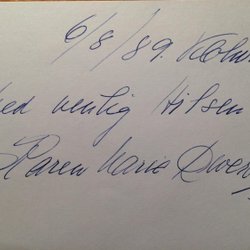 6/8/89. Kbh
ed venlig Hilsen
Karen Marie